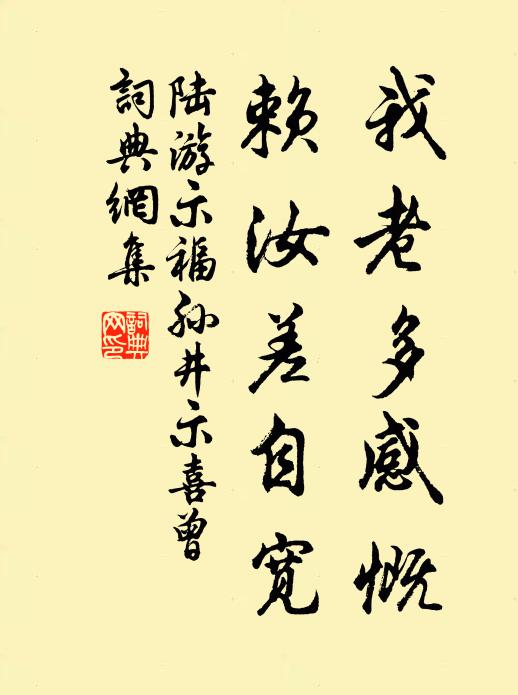 我老多感慨
赖汝差自宽
陆游示福孙井示喜曾
詞典網集
詞典
网印